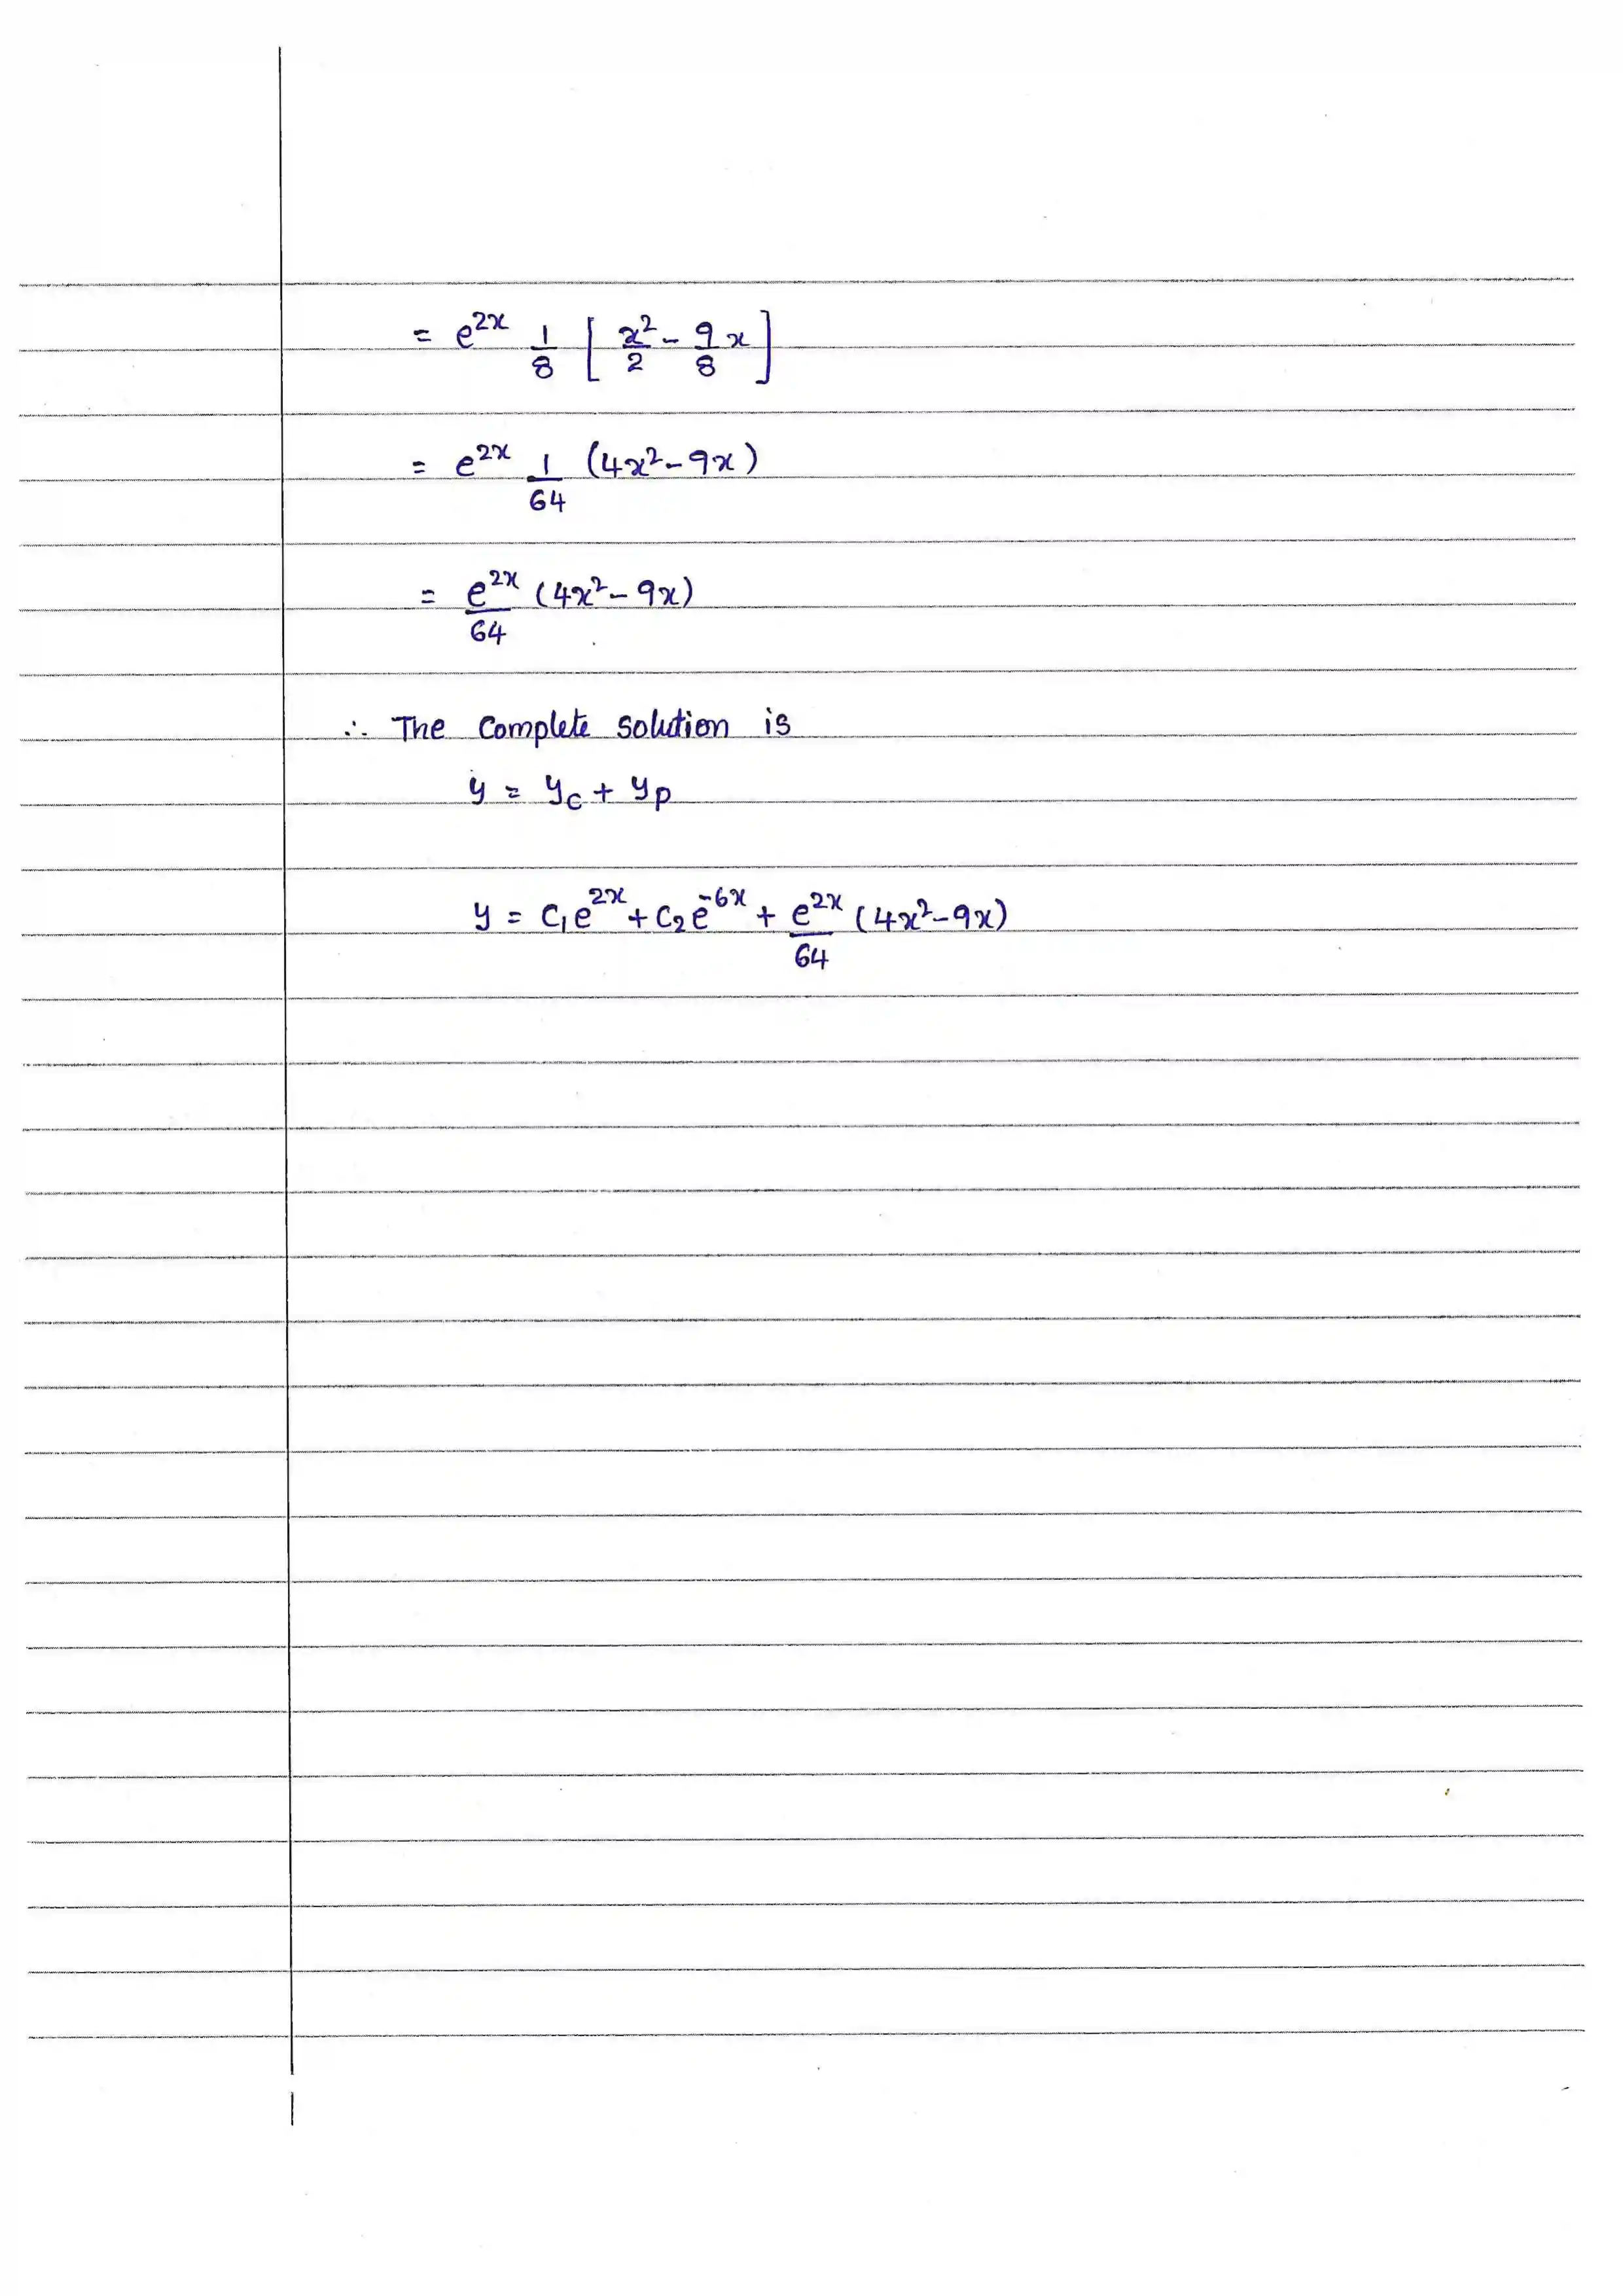 = e^{2x} \frac{1}{8} [ \frac{x^2}{2} - \frac{9}{8} x ]
= e^{2x} \frac{1}{64} (4x^2 - 9x)
= \frac{e^{2x}}{64} (4x^2 - 9x)
∴ The Complete solution is
y = y_c + y_p
y = C_1 e^{2x} + C_2 e^{-6x} + \frac{e^{2x}}{64} (4x^2 - 9x)